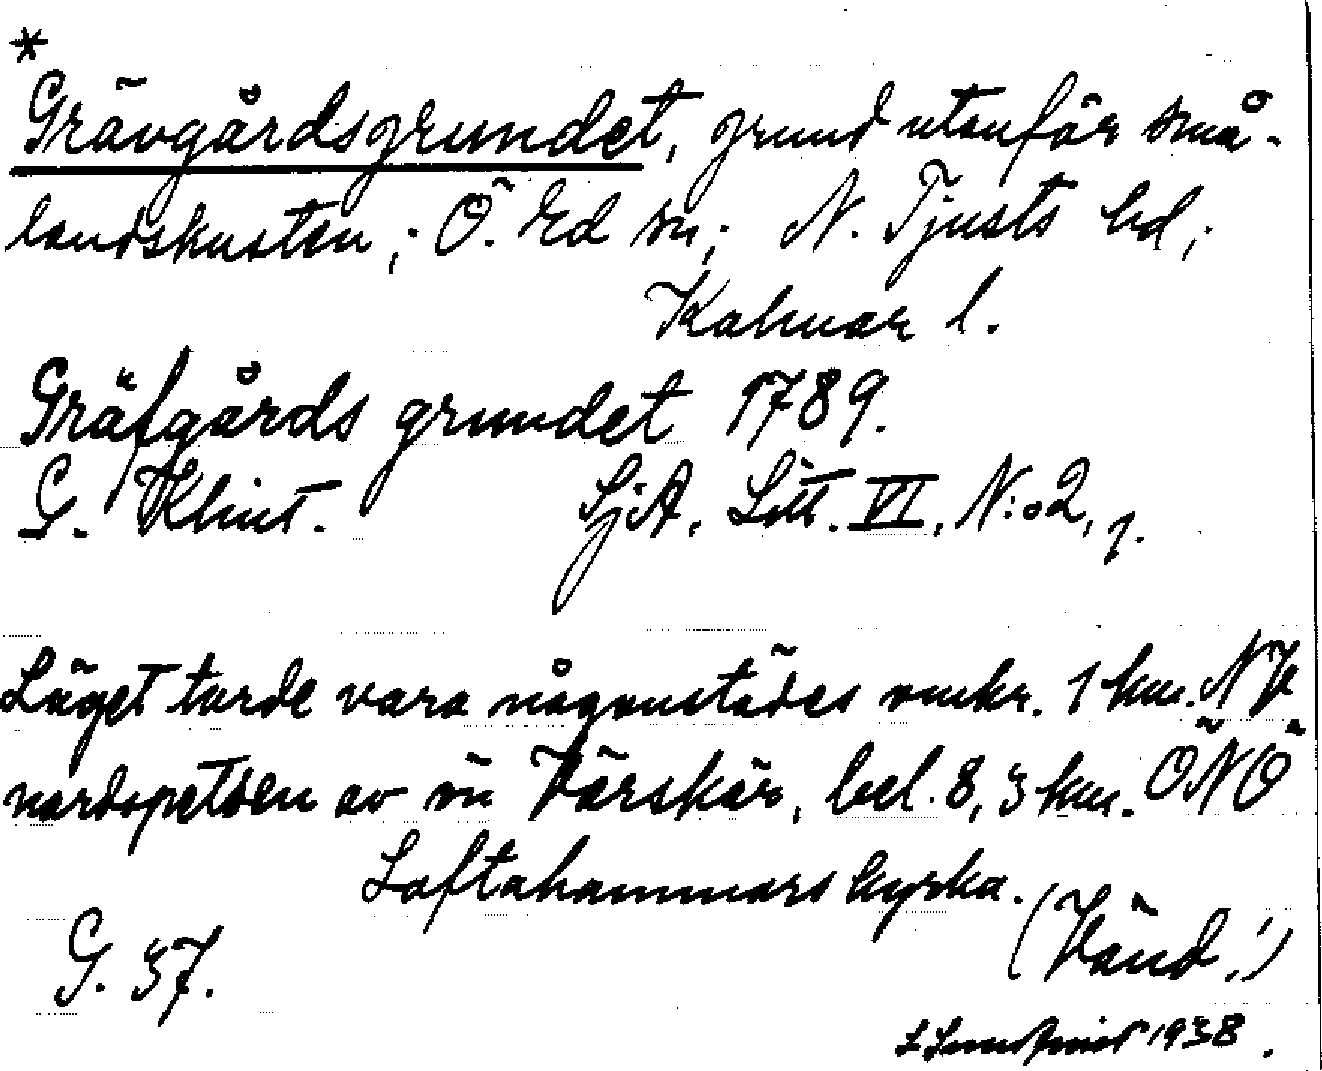 *
Grävgårdsgrundet, grund utanför små-
landskusten; Ö. Ed sn; N. Tjusts hd;
Kalmar l.
Gräfgårds grundet 1789.
G. Klint. SjA, Litt. VI, N:o 2, 1.
Läget torde vara någonstädes omkr. 1 km. NV
nordspetsen av ön Vårskär, bel. 8,3 km. ÖNÖ
Loftahammars kyrka.
(Vänd!)
G. 37.
1938.